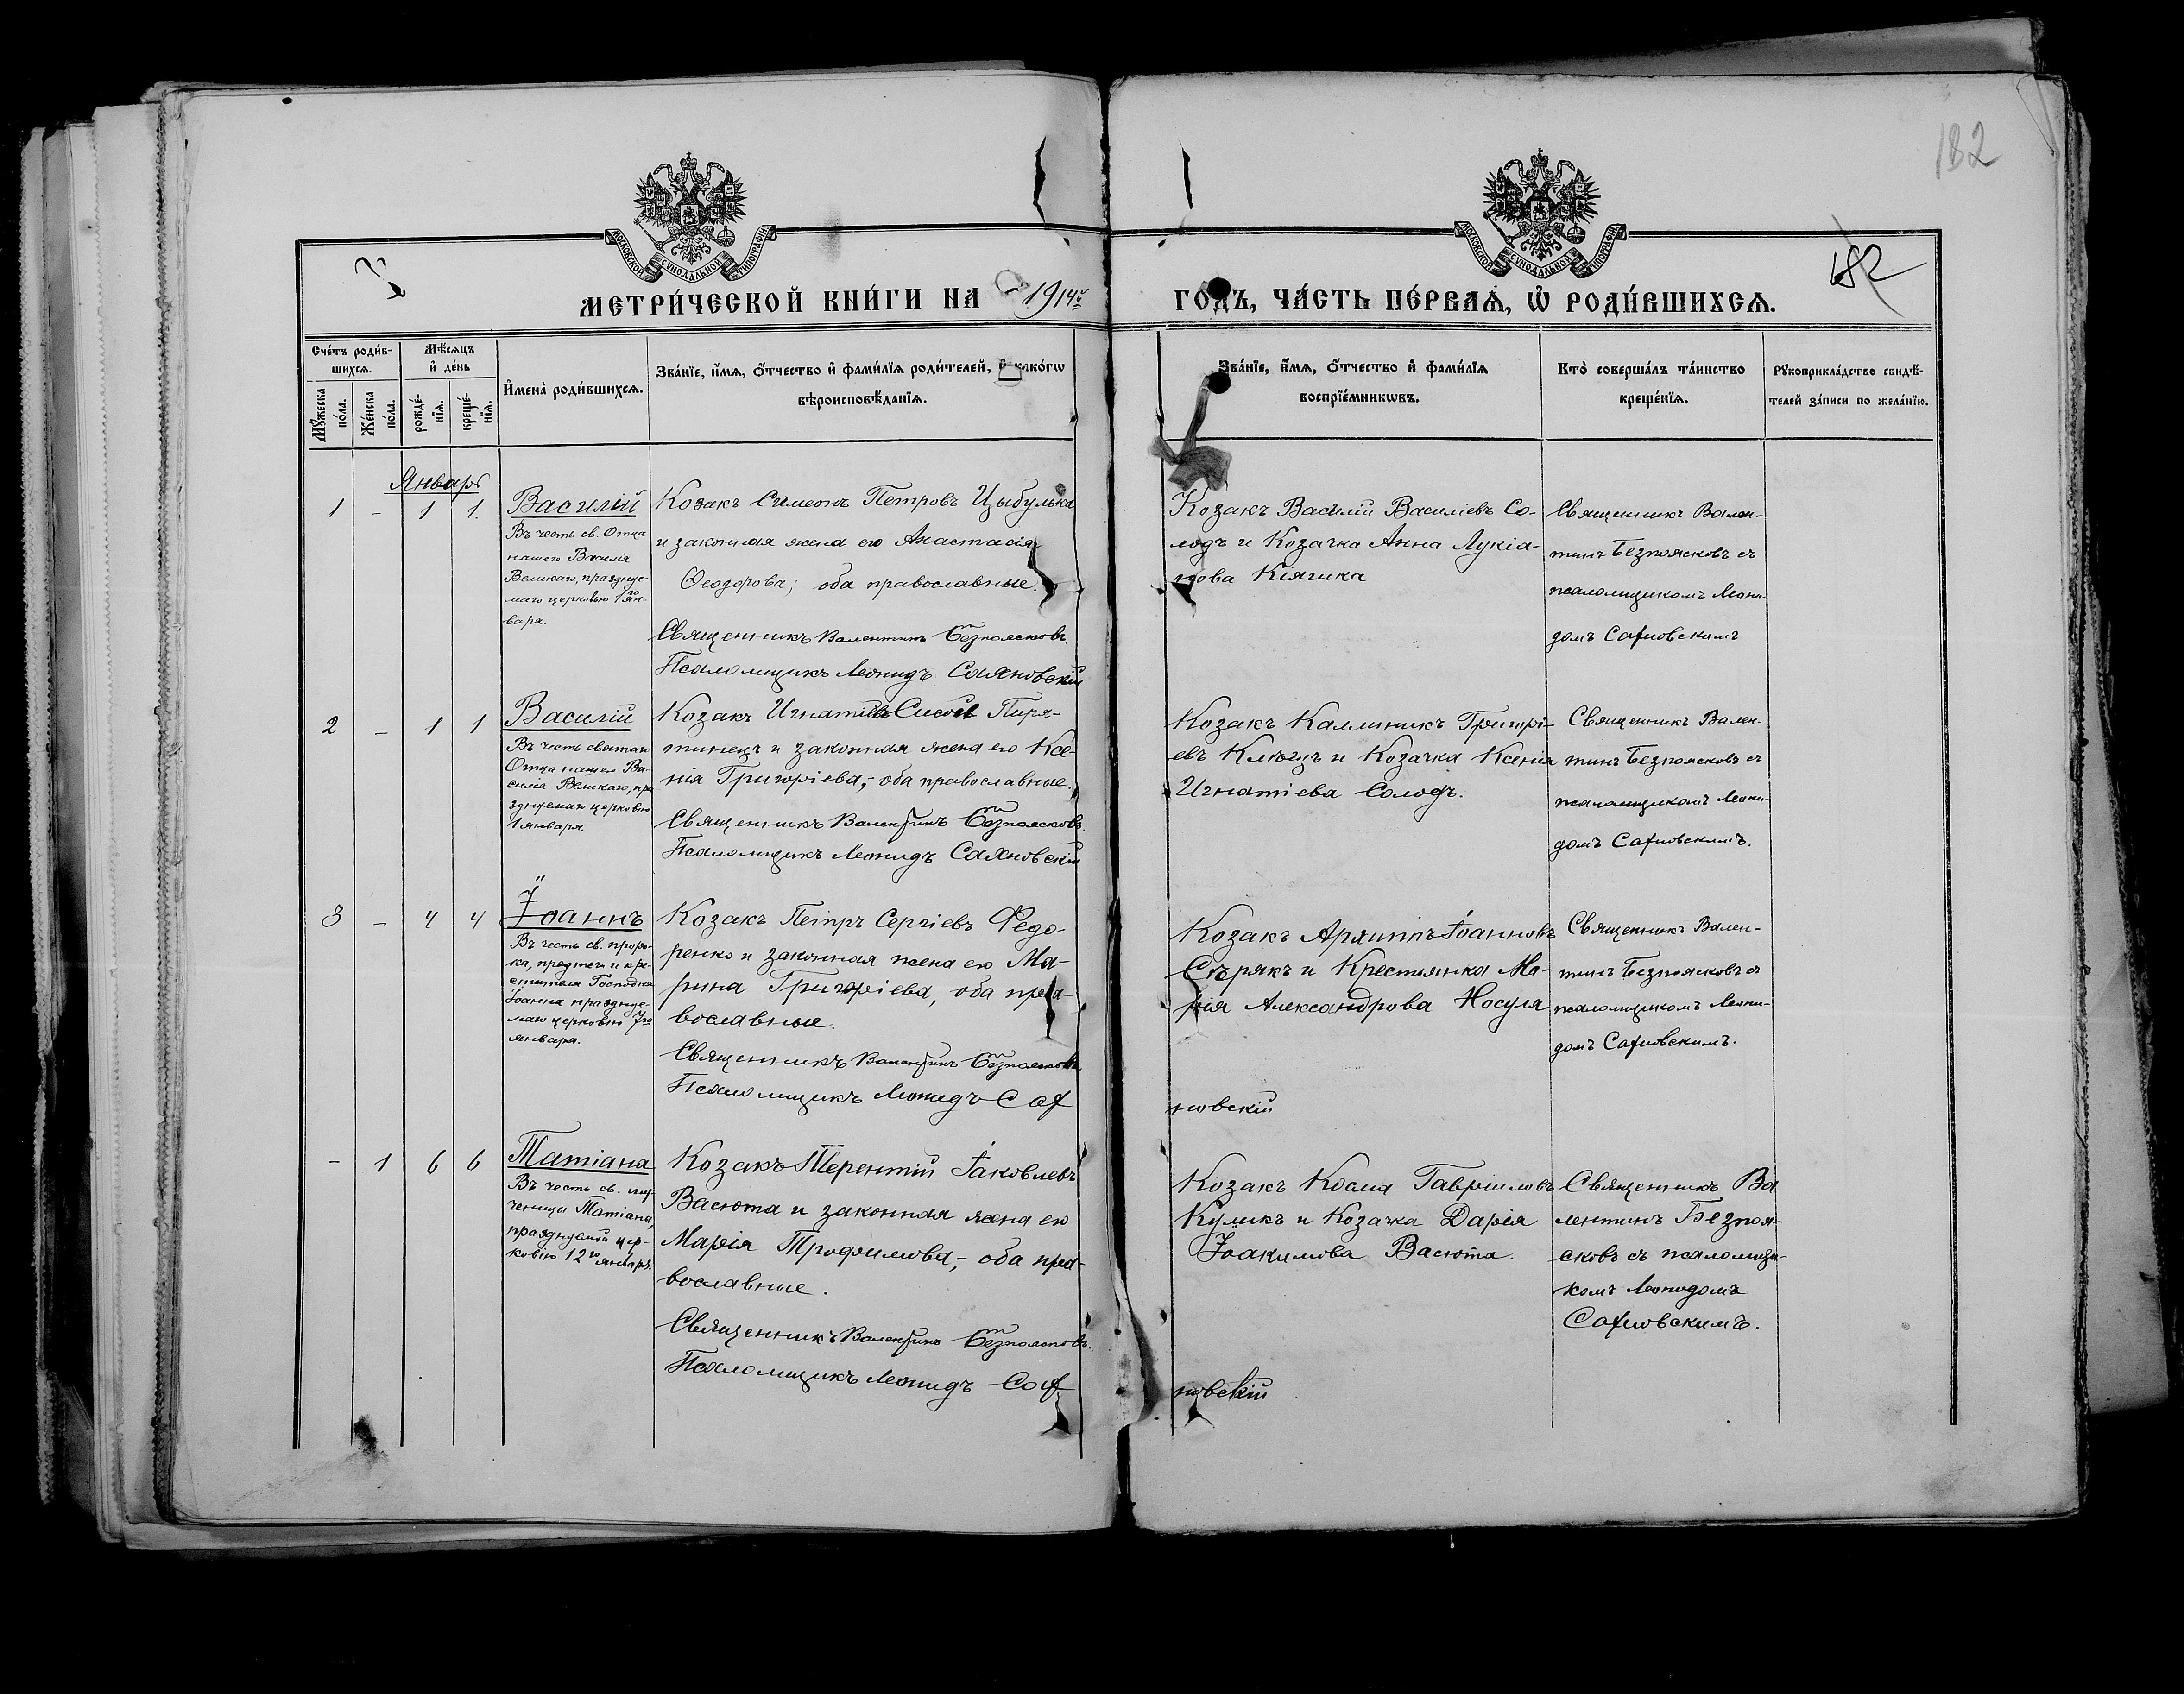 182
МОСКОВСКОЙ СѴНОДАЛЬНОЙ ТИПОГРАФІИ
МОСКОВСКОЙ СѴНОДАЛЬНОЙ ТИПОГРАФІИ
182
МЕТРИ́ЧЕСКОЙ КНИ́ГИ НА 1914й ГОДЪ, ЧА́СТЬ ПЕ́РВАѦ, Ѽ РОДИ́ВШИХСѦ.
Сче́тъ роди́в-
шихсѧ.
Мꙋ́жеска по́ла.
Же́нска по́ла.
Мѣ́сѧцъ
и҆ де́нь
рожде́-
нїѧ.
креще́-
нїѧ.
И҆мена̀ роди́вшихсѧ.
Зва́нїе, и҆́мѧ, ѻ҆́тчество и҆ фами́лїѧ роди́телей, и҆ како́гѡ
вѣроисповѣ́данїѧ.
Зва́нїе, и҆́мѧ, ѻ҆́тчество и҆ фами́лїѧ
воспрїе́мникѡвъ.
Кто̀ соверша́лъ та́инство
креще́нїѧ.
Рꙋкоприкла́дство свидѣ́-
телей за́писи по жела́нїю.
Январь
1 - 1 1
Василій
Въ честь св. Отца
нашего Василія
Великаго, праздуе-
маго церковью 1го Ян-
варя.
Козакъ Симеонъ Петровъ Цыбулька
и законная жена его Анастасія
Ѳеодорова; оба православные.
Священникъ Валентинъ Безпоясковъ.
Псаломщикъ Леонидъ Сахновскій
Козакъ Василій Василіевъ Со-
лодъ и Козачка Анна Лукіа-
нова Кіяшка
Священникъ Вален-
тинъ Безпоясковъ съ
псаломщикомъ Леони-
домъ Сахновскимъ
2 - 1 1
Василій
Въ честь святаго
Отца нашего Ва-
силія Великаго, пра
зднуемаго церковью
1 января.
Козакъ Игнатій Сисоев Пиря-
тинецъ и законная жена его Ксе-
нія Григоріева; оба православные.
Священникъ Валентинъ Безпоясковъ.
Псаломщикъ Леонидъ Сахновскій
Козакъ Каллиникъ Григорі-
евъ Клющъ и Козачка Ксенія
Игнатіева Солодъ.
Священникъ Вален-
тинъ Безпоясковъ съ
псаломщикомъ Леони-
домъ Сахновскимъ.
3 - 4 4
Іоаннъ
Въ честь св. проро-
ка, предтечи и кре-
стителя Господня
Іоанна празднуе-
маго церковью 7го
января.
Козакъ Петръ Сергіевъ Федо-
ренко и законная жена его Ма-
рина Григоріева, оба пра-
вославные.
Священникъ Валентинъ Безпоясковъ.
Псаломщикъ Леонидъ Сах
новскій
Козакъ Архиппъ Іоанновъ
Сѣрякъ и Крестьянка Ма-
рія Александрова Носуля
Священникъ Вален-
тинъ Безпоясковъ съ
псаломщикомъ Леони-
домъ Сахновскимъ.
- 1 6 6
Татіана
Въ честь св. му-
ченицы Татіаны,
празднуемой цер-
ковію 12го января.
Козакъ Терентій Іаковлевъ
Васюта и законная жена его
Марія Трофимова, - оба пра-
вославные.
Священникъ Валентинъ Безпоясковъ.
Псаломщикъ Леонидъ Сах
новскій
Козакъ Косма Гавріиловъ
Куликъ и Козачка Дарія
Іоакимова Васюта.
Священникъ Ва
лентинъ Безпоя-
сковъ съ псаломщи-
комъ Леонидомъ
Сахновскимъ.